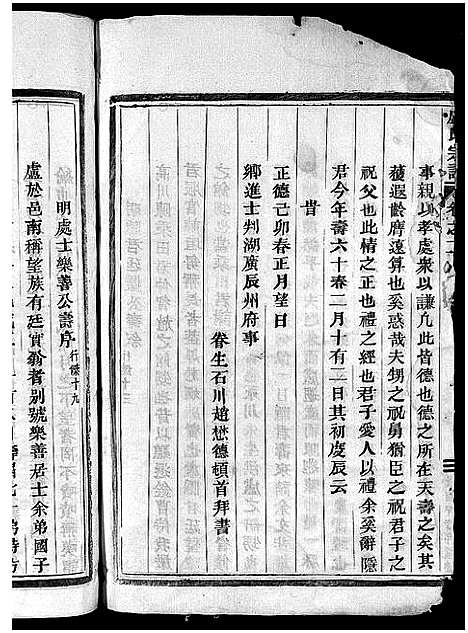 盧氏宗譜
事親以孝處衆以謙凡此皆德也德之所在天壽之矣其
穫遐齡膺遠算也奚惑哉夫甥之祝舅猶臣之祝君子之
祝父也此情之正也禮之經也君子愛人以禮余奚辭隱
君今年壽六十春二月十有二日其初度辰云
昔
正德己卯春正月望日
鄉進士判湖廣辰州府事
眷生石川趙懋德頓首拜書
明處士樂善公壽序 行儀十九
盧於邑南稱望族有廷實翁者别號樂善居士余弟國子